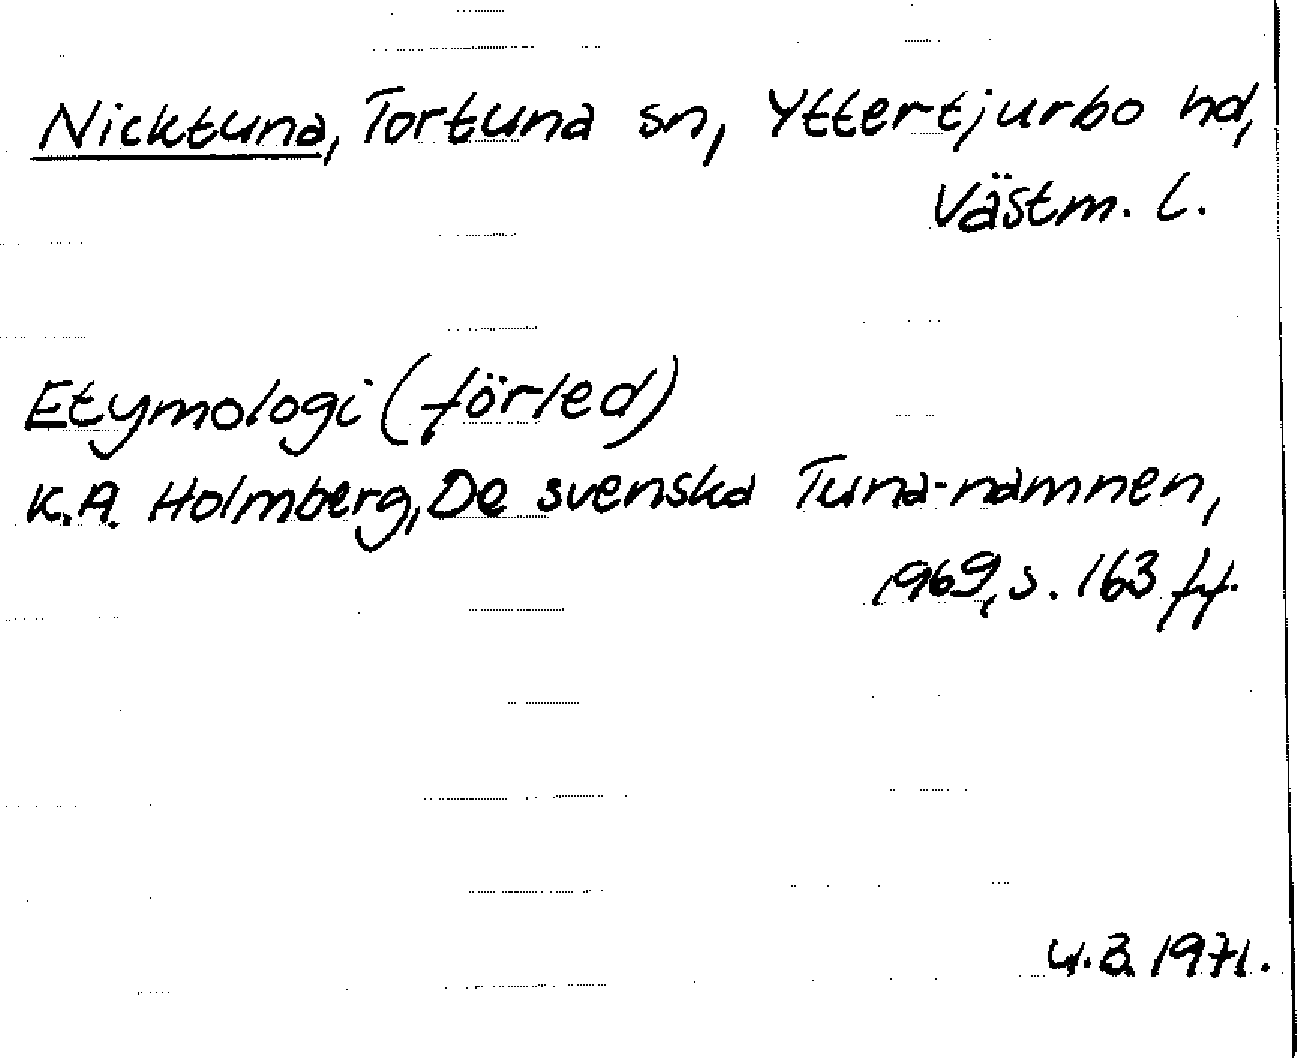 Nicktuna, Tortuna sn, Yttertjurbo hd,
Västm. l.
Etymologi (förled)
K.A. Holmberg, De svenska Tuna-namnen,
1969, s. 163 ff.
U.B. 1971.